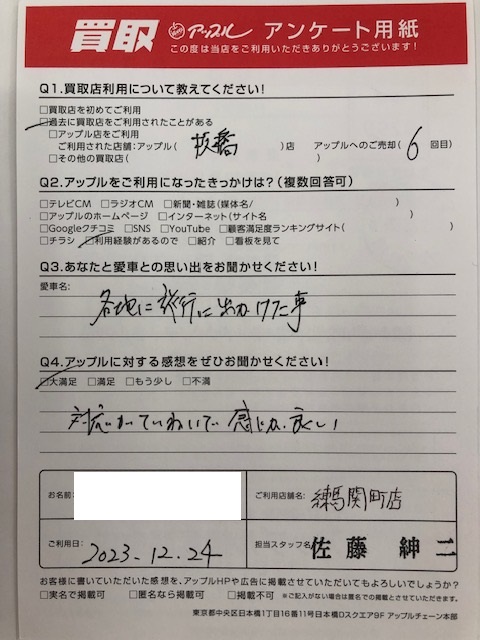 買取 アップル アンケート用紙
この度は当店をご利用いただきありがとうございます！
Q1.買取店利用について教えてください！
□買取店を初めてご利用
□過去に買取店をご利用されたことがある
□アップル店をご利用
ご利用された店舗:アップル( 板橋 )店 アップルへのご売却( 6 回目)
□その他の買取店( )
Q2.アップルをご利用になったきっかけは？(複数回答可)
□テレビCM □ラジオCM □新聞・雑誌(媒体名/ )
□アップルのホームページ □インターネット(サイト名 )
□Googleクチコミ □SNS □YouTube □顧客満足度ランキングサイト( )
□チラシ □利用経験があるので □紹介 □看板を見て
Q3.あなたと愛車との思い出をお聞かせください！
愛車名:
各地に旅行に出かけた事
Q4.アップルに対する感想をぜひお聞かせください！
□大満足 □満足 □もう少し □不満
対応がていねいで感じが良い
お名前: ご利用店舗名: 練馬関町店
ご利用日: 2023.12.24 担当スタッフ名 佐藤 紳二
お客様に書いていただいた感想を、アップルHPや広告に掲載させていただいてもよろしいでしょうか？
□実名で掲載可 □匿名なら掲載可 □掲載不可 ※ご記入がない場合は匿名での掲載とさせていただきます。
東京都中央区日本橋1丁目16番11号日本橋Dスクエア9F アップルチェーン本部